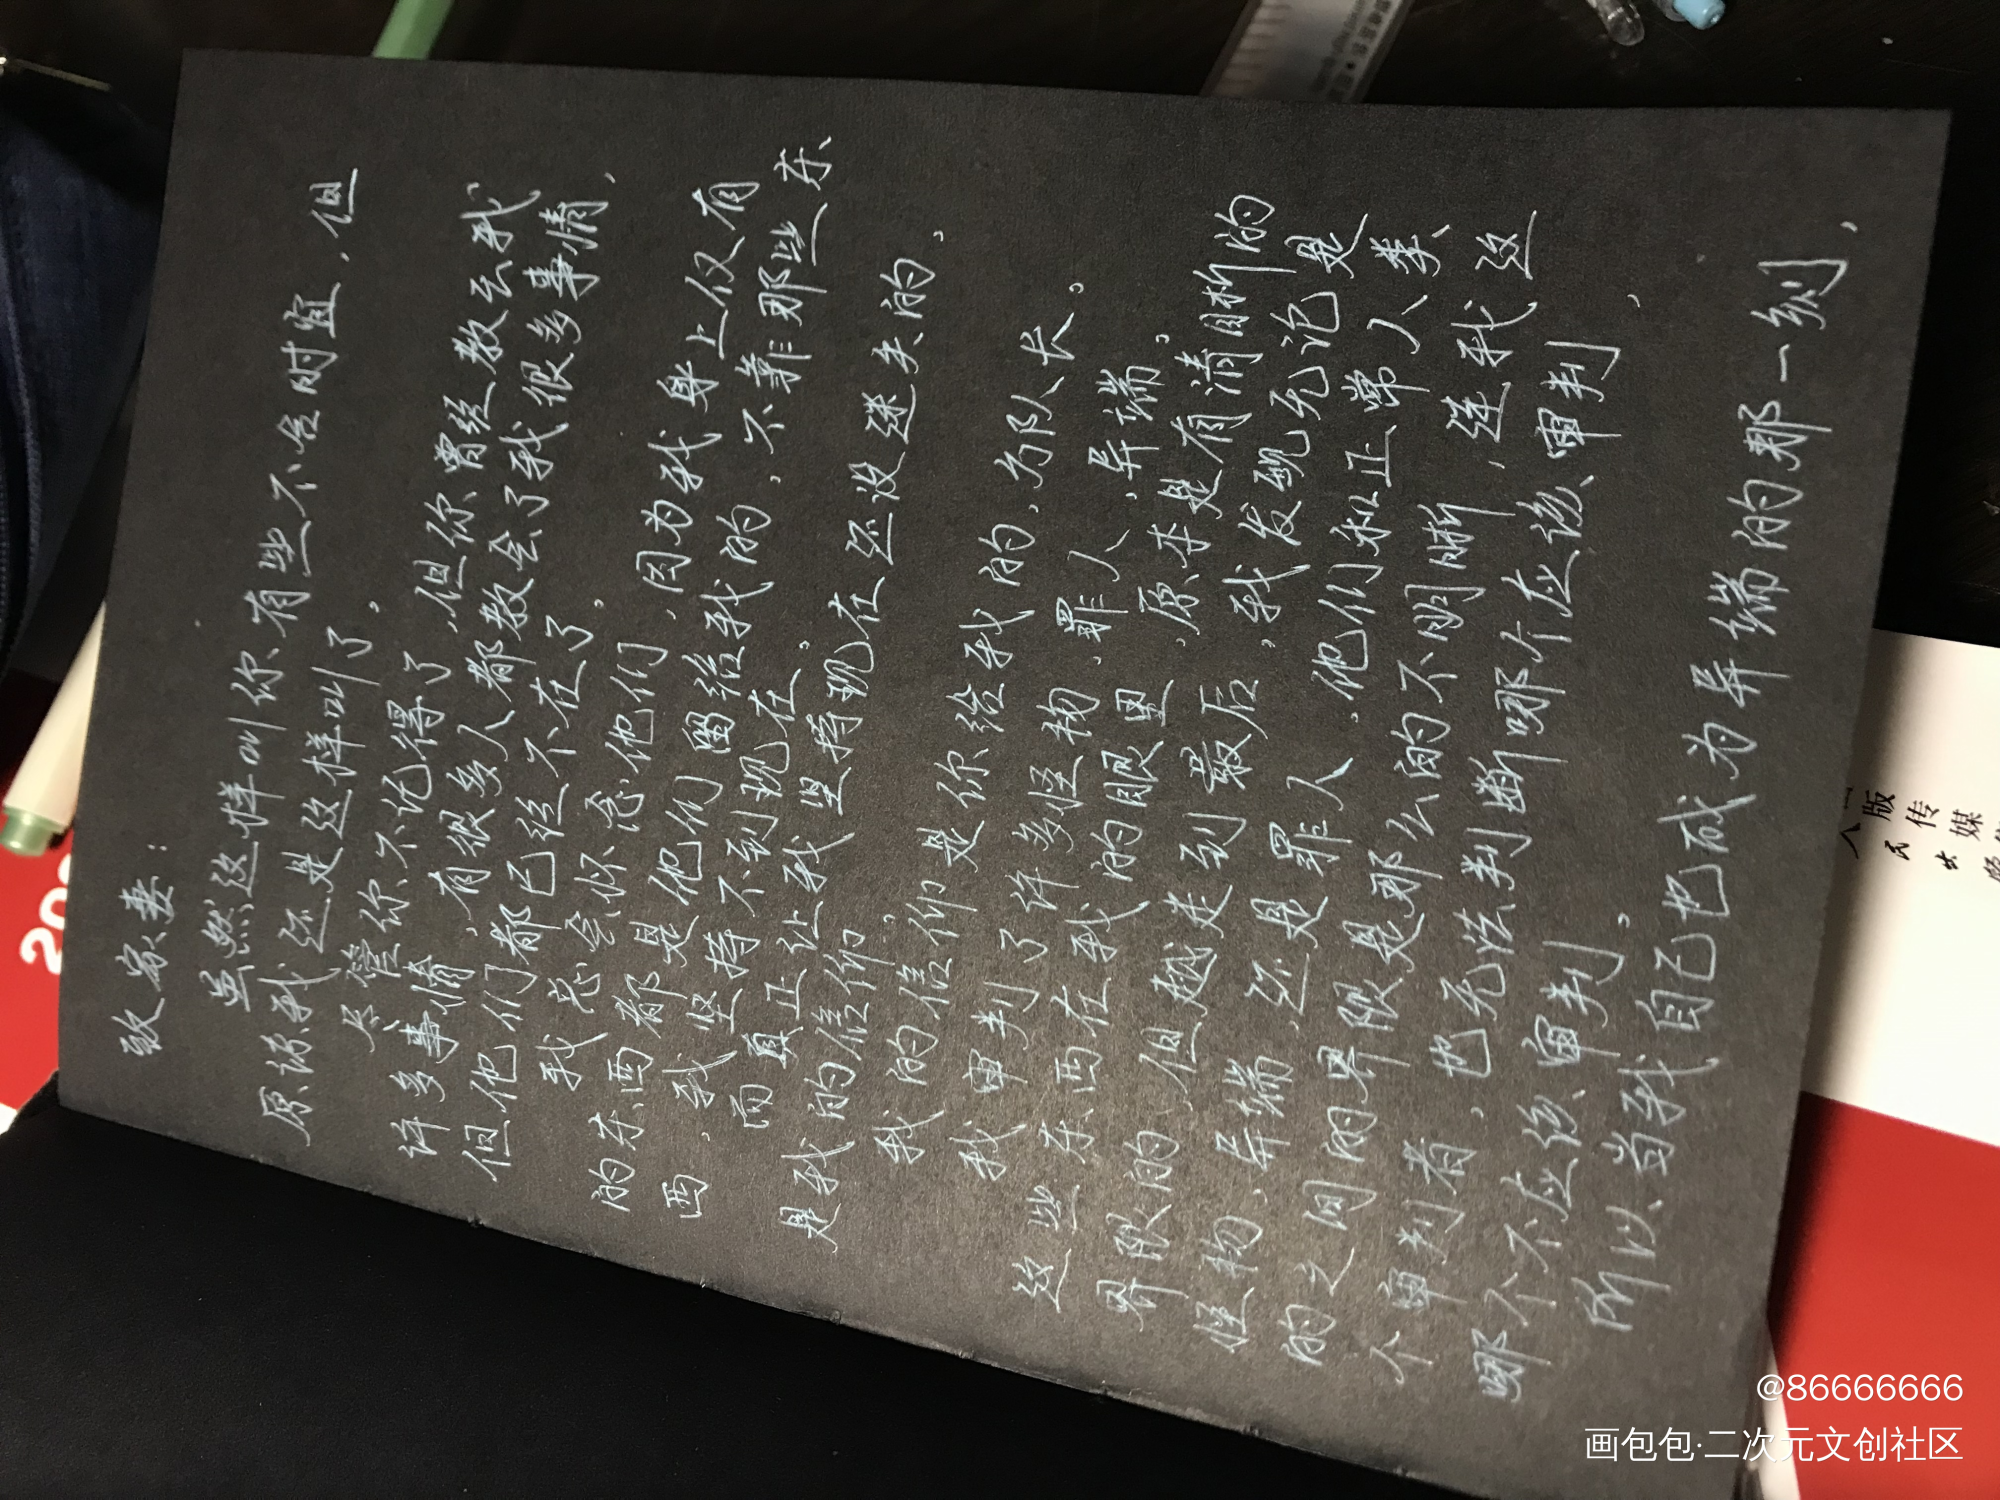 致安妻：
虽然这样叫你、有些不合时宜，但
原谅我还是这样叫了。
尽管你不记得了，但你曾经教会我
许多事情，有很多人都教会了我很多事情，
但他们都已经不在了。
我总会怀念他们，因为我身上仅有
的东西都是他们留给我的，不靠那些东
西，我坚持不到现在。
而真正让我坚持现在还没迷失的，
是我的信仰。
我的信仰是你给我的，为队长。
我审判了许多怪物，罪人，异端。
这些东西在我的眼里，原本是有清晰的
界限的，但越走到最后，我发现无论是
怪物、异端还是罪人，他们和正常人类、
的之间的界限是那么的不明晰，连我这
个审判者，也无法判断哪个应该、审判，
哪个不应该、审判。
所以当我自己也成为异端的那一刻，
人民出版传媒
@86666666
画包包·二次元文创社区